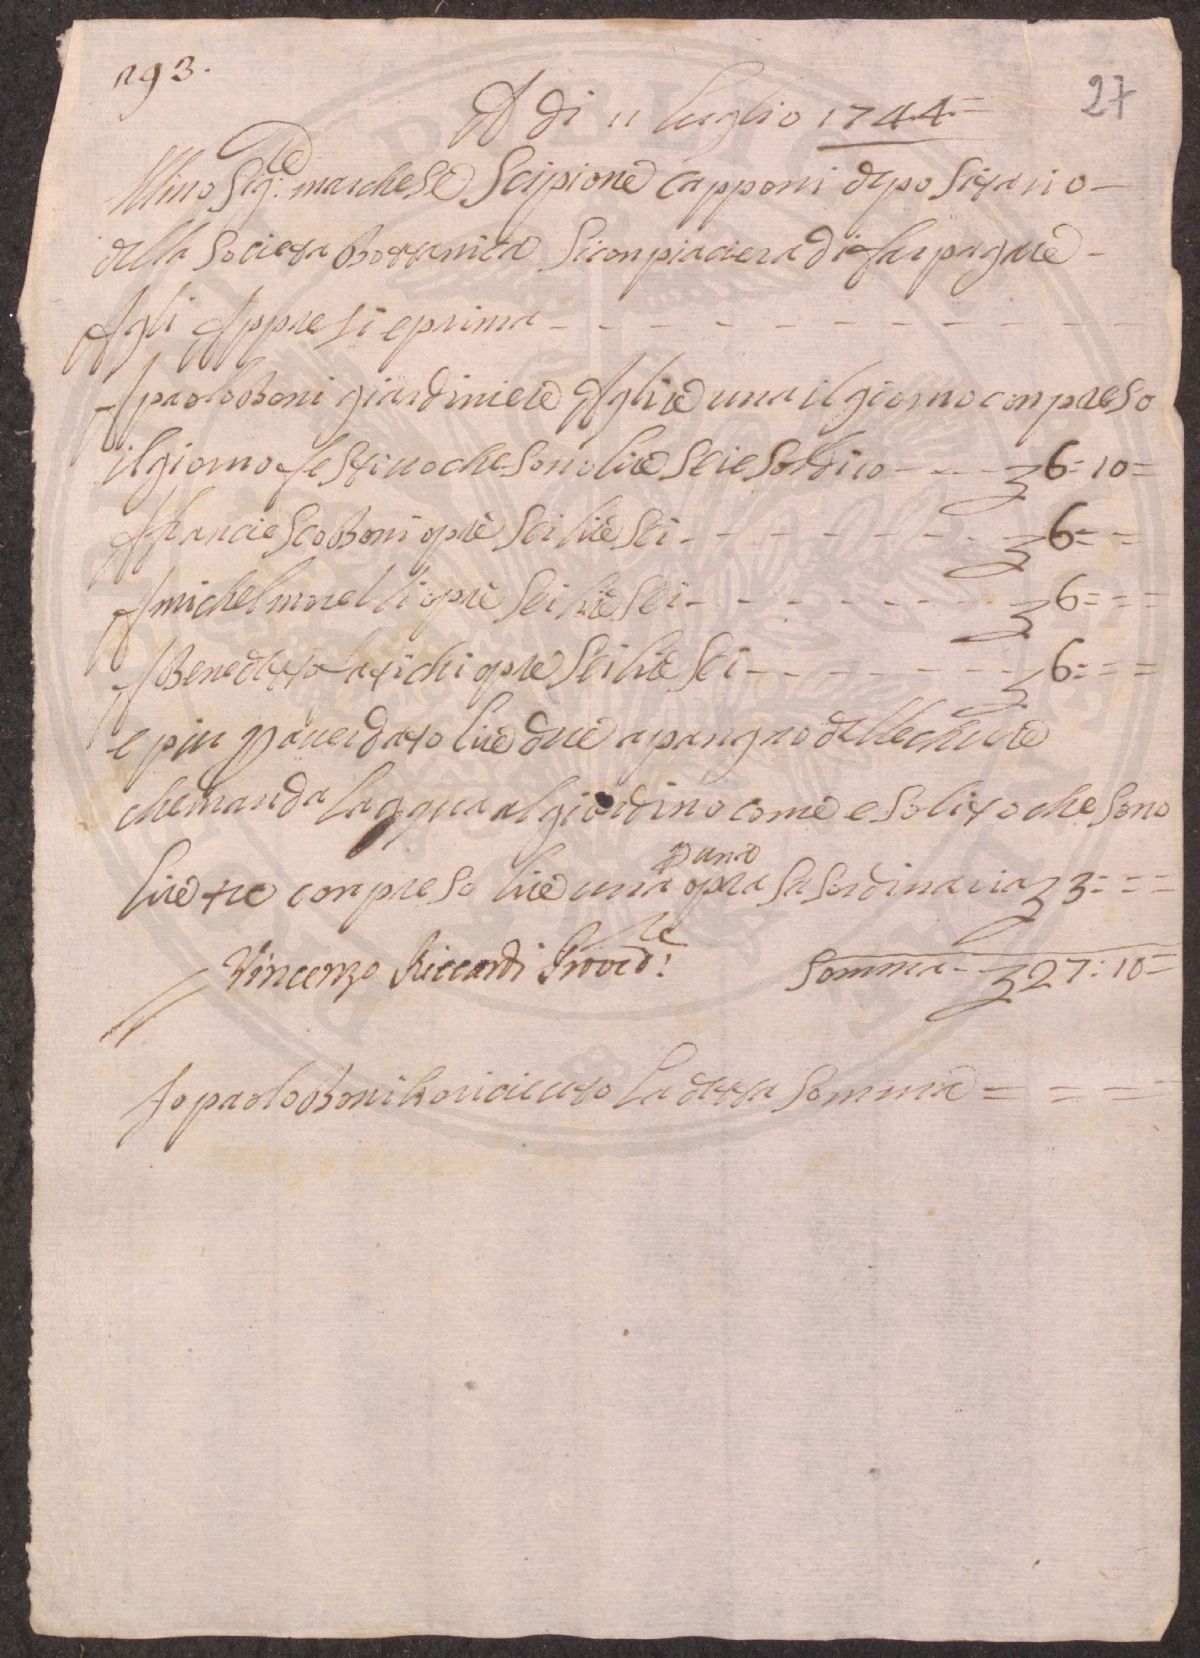 193.
27
A di 11 luglio 1744=
Illmo Sig:re marchese Scipione Capponi dipositario
della Società Bottanica Si conpiacierà di far pagare
Agli Appresi e prima
A paolo Boni giardiniere A lire una il giorno conpreso
il giorno festivo che sono lire sei e soldi 10 6=10=
A franciesco Boni opre sei lire sei 6= =
A michel morelli opre sei lire sei 6= = =
A Benedetto latichi opre sei lire sei 6= = =
e piu p aver dato lire due a pangrao delle chiave
che manda lagqua al giardino come e solito che sono
lire tre conpreso lire una p una opra 3= = =
Vincenzo Riccardi Provred:re
Somma 27:10=
Io paolo Boni ho ricieuto la detta Somma = = = =